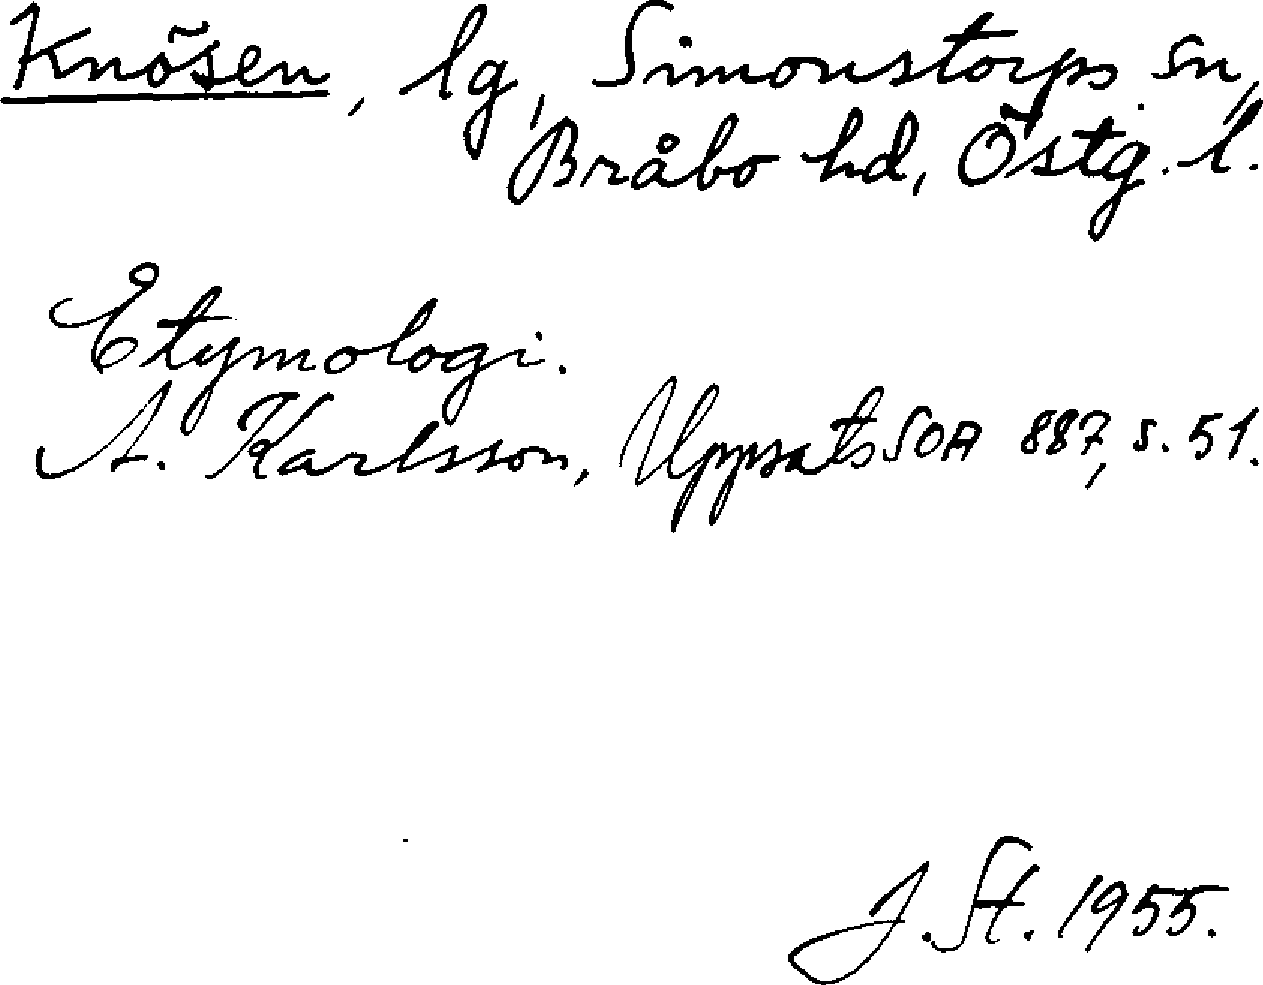 Knösen, lg, Simonstorps sn,
Bråbo hd, Östg. l.
Etymologi.
A. Karlsson, Uppsats SOA 887, s. 51.
J. St. 1955.